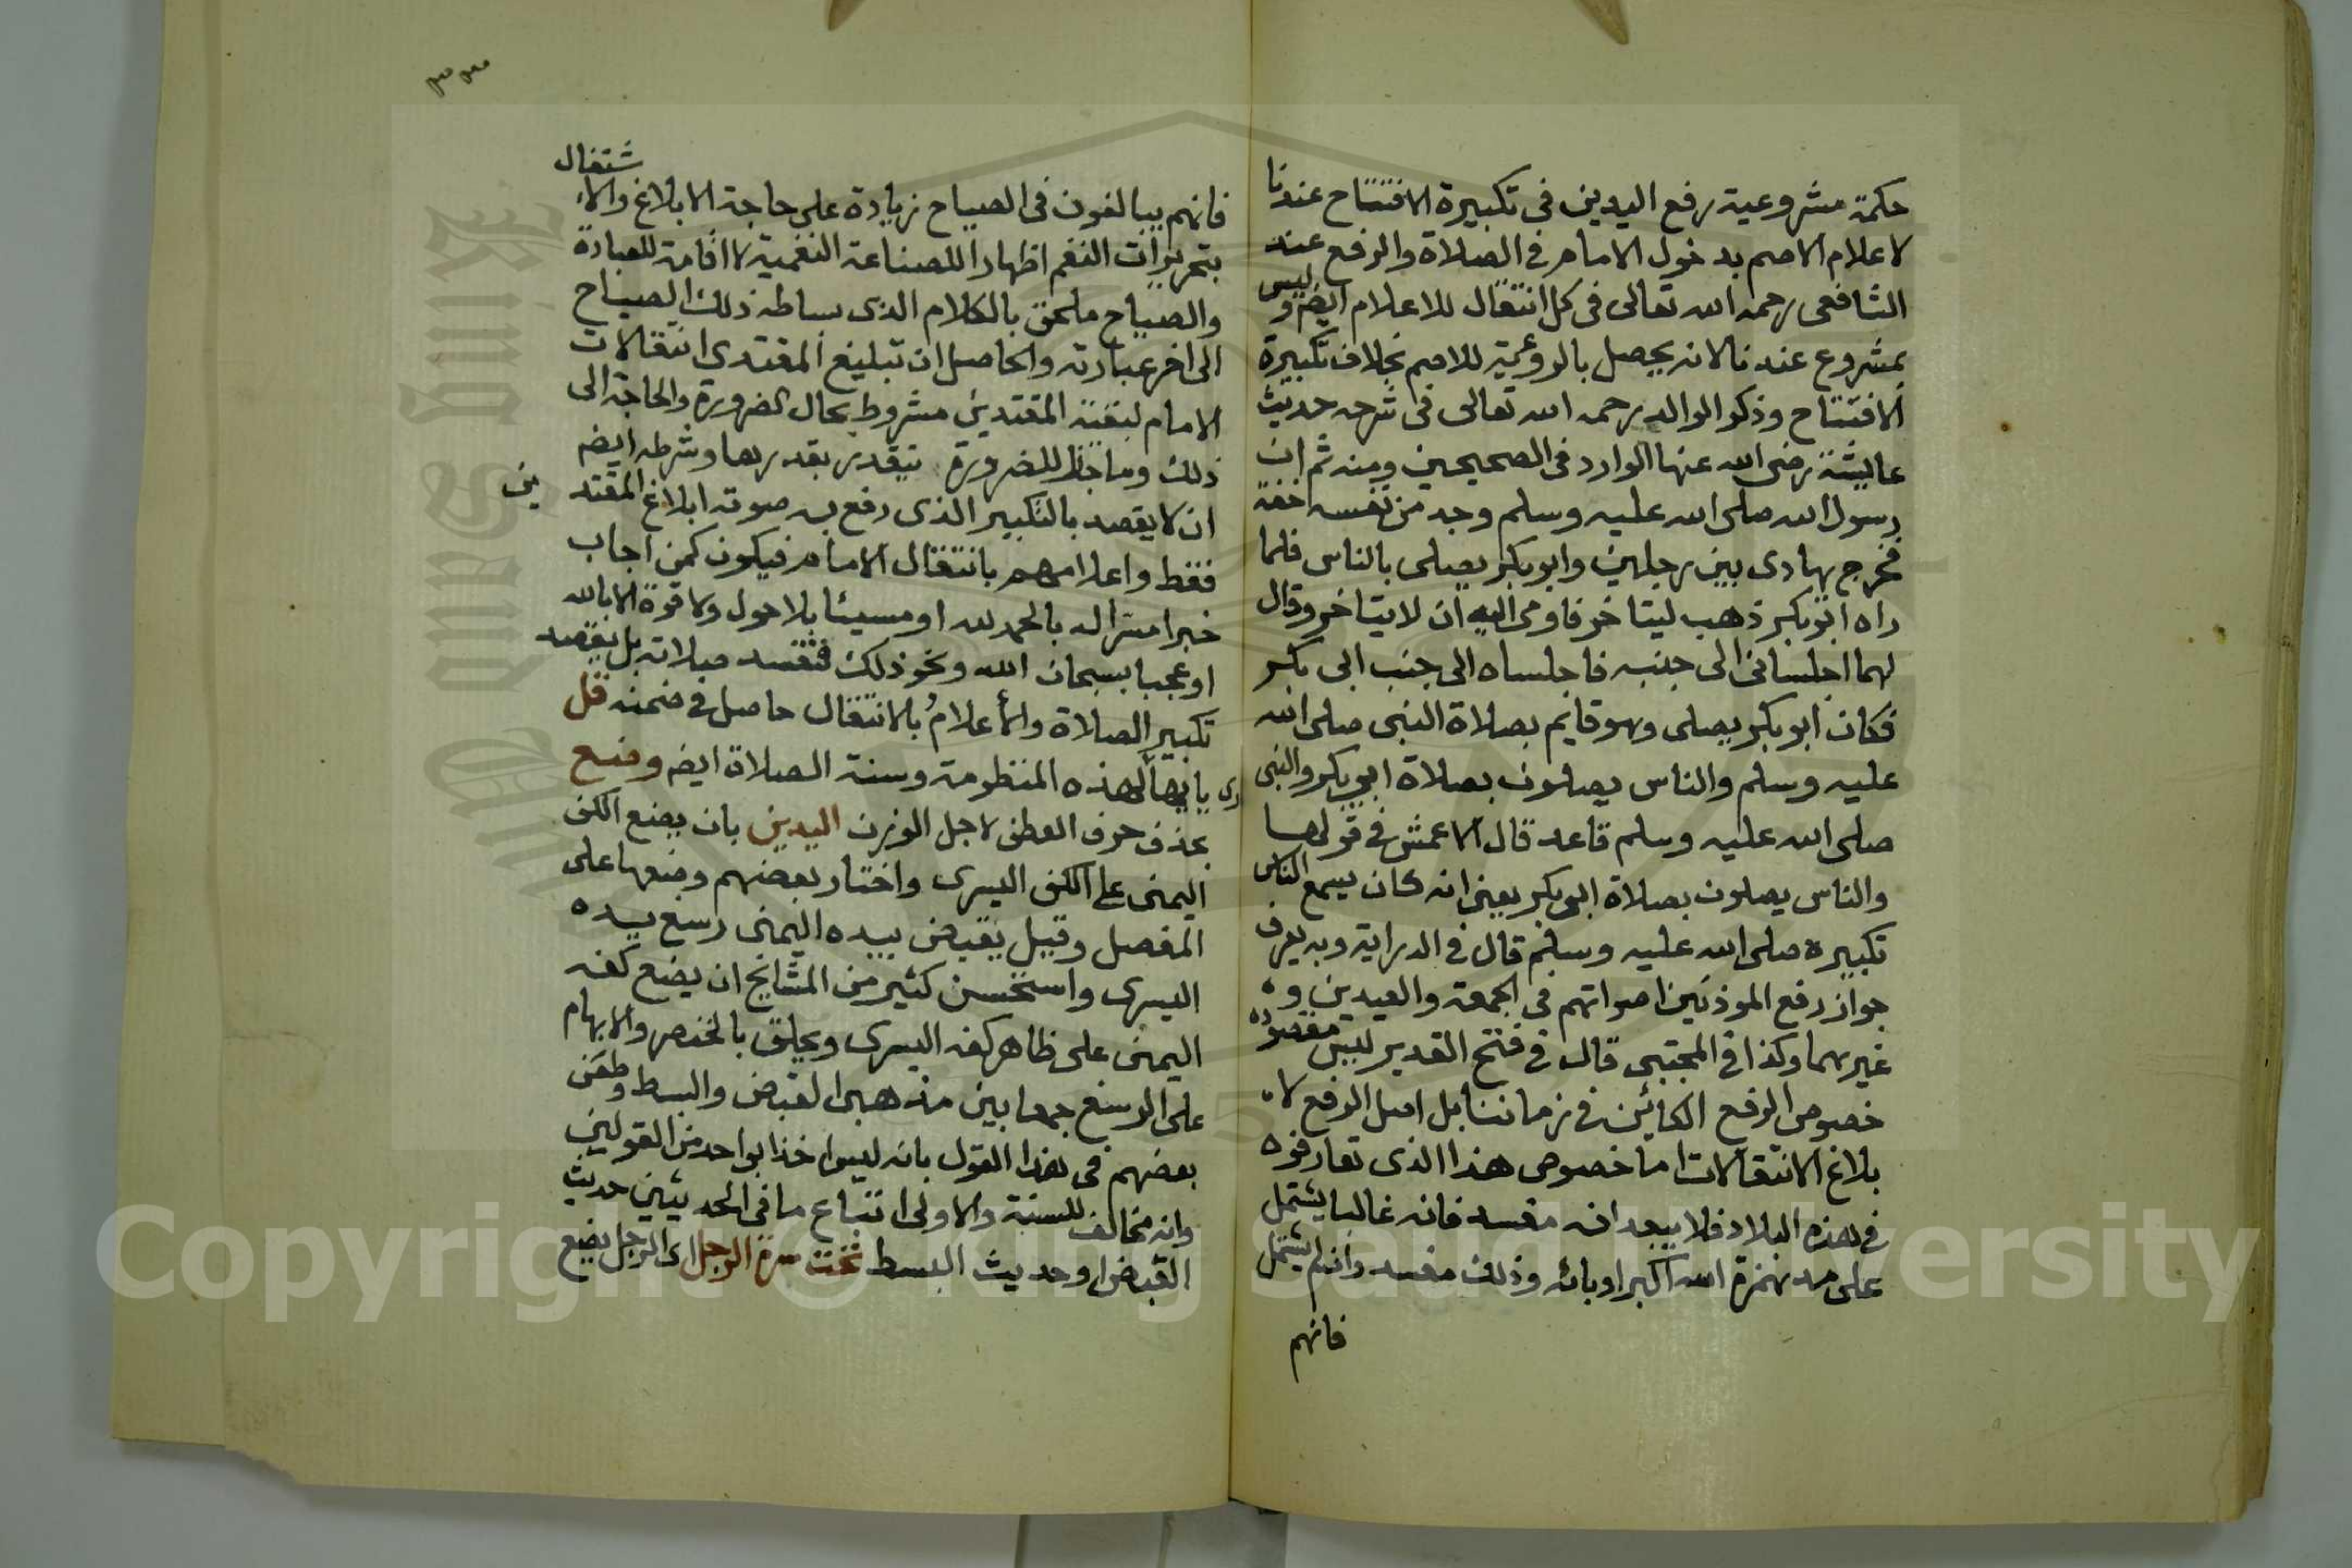 حكمة مشروعية رفع اليدين فى تكبيرة الافتتاح عندنا
لاعلام الاصم بدخول الامام فى الصلاة والرفع عند
الشافعى رحمه الله تعالى فى كل انتقال للاعلام ايضا وليس
بمشروع عندنا لانه يحصل بالروءية للاصم بخلاف تكبيرة
الافتتاح وذكر الوالد رحمه الله تعالى فى شرحه حديث
عايشة رضى الله عنها الوارد فى الصحيحين ومنه ثم ان
رسول الله صلى الله عليه وسلم وجد من نفسه خفة
فخرج يهادى بين رجلين وابو بكر يصلى بالناس فلما
راه ابو بكر ذهب ليتاخر فاومى اليه ان لا يتاخر وقال
لهما اجلسانى الى جنبه فاجلساه الى جنب ابى بكر
فكان ابو بكر يصلى وهو قايم بصلاة النبى صلى الله
عليه وسلم والناس يصلون بصلاة ابى بكر والنبى
صلى الله عليه وسلم قاعد قال الاعمش فى قولها
والناس يصلون بصلاة ابى بكر يعنى انه كان يسمع الناس
تكبيره صلى الله عليه وسلم قال فى الدراية وبه يعرف
جواز رفع الموذنين اصواتهم فى الجمعة والعيدين و
غيرهما وكذا فى المجتبى قال فى فتح القدير ليس مقصوده
خصوص الرفع الكائن فى زماننا بل اصل الرفع لا
بلاغ الانتقالات اما خصوص هذا الذى تعارفوه
فى هذه البلاد فلا يبعد انه مفسد فانه غالبا يشتمل
على مد همزة الله اكبر او بائه وذلك مفسد وان لم يشتمل
فانهم
٣٣
فانهم يبالغون فى الصياح زيادة على حاجة الابلاغ والاشتغال
بتحريرات النغم اظهارا للصناعة النغمية لا اقامة للعبادة
والصياح ملحق بالكلام الذى بساطه ذلك الصياح
الى اخر عبارته والحاصل ان تبليغ المقتدى انتقالات
الامام لبقية المقتدين مشروط بحال الضرورة والحاجة الى
ذلك وما جاز للضرورة يتقدر بقدرها وشرطه ايضا
ان لا يقصد بالتكبير الذى رفع به صوته ابلاغ المقتدين
فقط واعلامهم بانتقال الامام فيكون كمن اجاب
خبرا مسرا له بالحمد لله او مسيئا بلا حول ولا قوة الا بالله
او عجبا بسبحان الله ونحو ذلك فتفسد صلاته بل يقصد
تكبير الصلاة والأعلامُ بالانتقال حاصل فى ضمنه قل
يا ايها القارى لهذه المنظومة وسنة الصلاة ايضا وضع
بحذف حرف العطف لاجل الوزن اليدين بان يضع الكف
اليمنى على الكف اليسرى واختار بعضهم وضعها على
المفصل وقيل يقبض بيده اليمنى رسغ يده
اليسرى واستحسن كثير من المشايخ ان يضع كفه
اليمنى على ظاهر كفه اليسرى ويحلق بالخنصر والابهام
على الرسغ جمعا بين مذهبى القبض والبسط وطعن
بعضهم فى هذا القول بانه ليس اخذا بواحد من القولين
وانه مخالف للسنة والاولى اتباع ما فى الحديثين حديث
القبض او حديث البسط تحت سرة الرجل اى الرجل يضع
Copyright © King Saud University
King Saud University